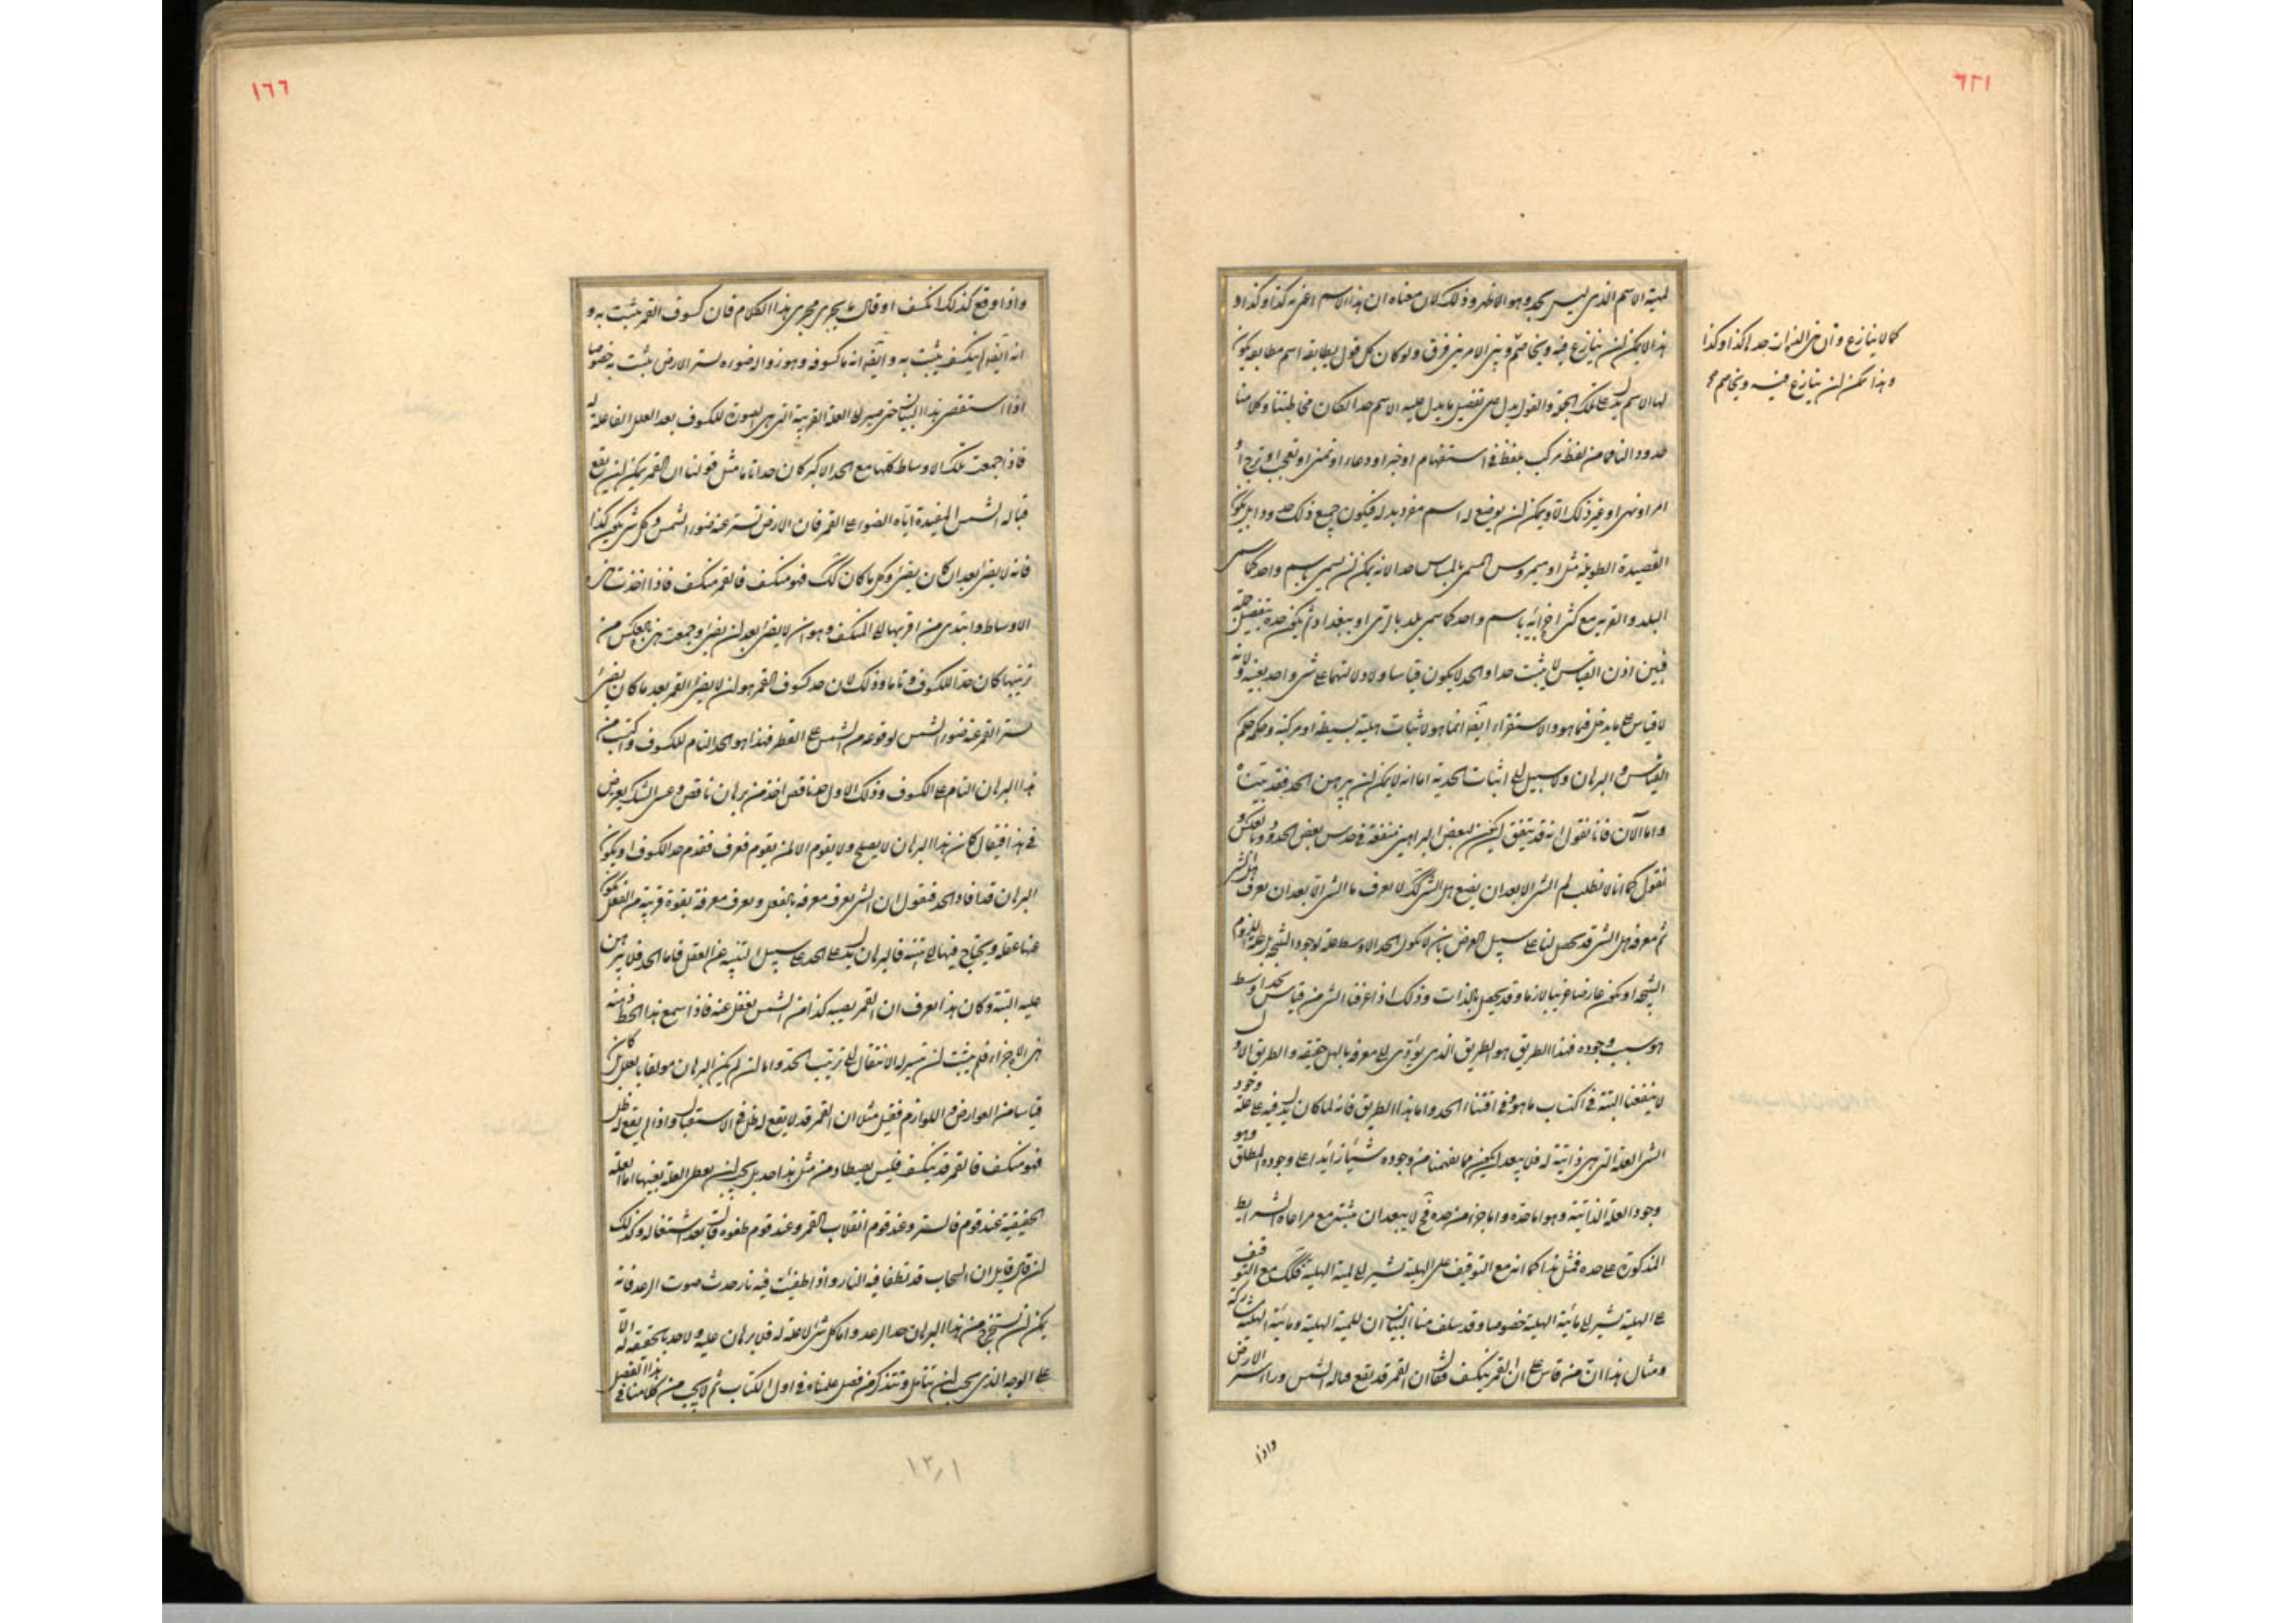 ٦٢١
لمية الاسم الذى ليس بحد وهو الاظهر وذلك لان معناه ان هذا الاسم اعنى به كذا وكذا و
هذا لا يمكن ان ينازع فيه ويخاصم وبين الامرين فرق ولو كان كل قول يطابقه اسم مطابقه يكون
لها الاسم يدل على تلك الجملة والقول يدل على تفصيل ما يدل عليه الاسم حدا لكان مخاطبتنا وكلامنا
حدودا لنا ما من لفظ مركب بلفظ فى استفهام او خبر او دعاء او تمنى او تعجب او ترجى او
امر او نهى او غير ذلك الا ويمكن ان يوضع له اسم مفرد بدله فيكون جميع ذلك حدودا بل يكون
القصيدة الطويلة مثل اوميروس المسمى بالياس حدا لانه يمكن ان يسمى باسم واحد كما يسمى
البلد والقرية مع كثرة اجزائه باسم واحد كما سمى بلد بالرى او ببغداد ثم يكون حده بتفصيل جمله
فبين اذن القياس لا يثبت حدا والحد لا يكون قياسا ولا دلالتهما على شئ واحد بعينه ولانه
لا قياس على ما يدخل فيما هو والاستقراء ايضا انما هو لاثبات هلية بسيطة او مركبة وحكمه حكم
القياس والبرهان ولا سبيل الى اثبات الحد به اما انه لا يمكن ان يبرهن الحد فقد بيناه
واما الآن فانا نقول انه قد يتفق ان يكون لبعض البراهين منفعة فى حدس بعض الحدود وبالعكس و
نقول كما انا لا نطلب لم الشئ الا بعد ان يضع هل الشئ كذلك لا نعرف ما الشئ الا بعد ان نعرف هل الشئ
ثم معرفة هل الشئ قد يحصل لنا على سبيل العرض بان لا يكون الحد الاوسط علة لوجود النتيجة بل علة للزوم
النتيجة او يكون عارضا غريبا لازما وقد يحصل بالذات وذلك اذا عرفنا الشئ من قياس بحد اوسط
هو سبب وجوده فهذا الطريق هو الطريق الذى يؤدى الى معرفة بالهل حقيقة والطريق الاول
لا ينفعنا البتة فى اكتساب ما هو وفى اقتناء الحد واما هذا الطريق فانه لما كان يدل فيه على علة وجود
الشئ العلة التى هى ذاتية له فلا يبعد ان يكون مما يفهمنا من وجوده شيئا زائدا على وجوده المطلق وهو
وجود العلة الذاتية وهو اما حده واما جزء من حده فح لا يبعد ان ننبه مع مراعاة الشرايط
المذكورة على حده فمثل هذا كما انه مع التوقيف على الهلية يشير الى لمية الهلية فكذلك مع التوقيف
على الهلية يشير الى مائية الهلية خصوصا وقد سلف منا البيان ان للمية الهلية ومائية الهلية مشاركة
ومثال هذا ان من قاس على ان القمر ينكسف فقال ان القمر قد يقع قبالة الشمس وراء ستر الارض
واذا
كما لا ينازع وان هى العبرات حد لكذا وكذا
وهذا يمكن ان ينازع فيه ويخاصم مح
١٦٦
واذا وقع كذلك انكسف او قال ما يجرى مجرى هذا الكلام فان كسوف القمر يثبت به و
انه ايضا لم ينكسف يثبت به وايضا انه ما كسوفه وهو زوال ضوءه لستر الارض يثبت به خصوصا
اذا استقصى هذا البيان حتى صير الى العلة القريبة التى هى كصورة للكسوف بعد العلل الفاعلة له
فاذا جمعت تلك الاوساط كلها مع الحد الاكبر كان حدا تاما مثل قولنا ان القمر يمكن ان يقع
قبالة الشمس المفيدة اياه الضوء على القطر فان الارض تستر عنه ضوء الشمس وكل شئ يكون كذا
فانه لا يضئ بعد ان كان يضئ وكل ما كان كذلك فهو منكسف فالقمر منكسف فاذا اخذت هذه
الاوساط وابتدى من اقربها الى المنكسف وهو ان لا يضئ بعد ان يضئ وجمعت هى بالعكس من
ترتيبها كان حدا للكسوف تاما وذلك لان حد كسوف القمر هو ان لا يضئ القمر بعد ما كان يضئ
لستر القمر عنه ضوء الشمس لوقوعه من الشمس على القطر فهذا هو الحد التام للكسوف واكتسب من
هذا البرهان التام على الكسوف وذلك الاول حد ناقص اخذ من برهان ناقص وعسى الشك يعرض
فى هذا فيقال كان هذا البرهان لا يصلح ولا يقوم الا لمن يقوم فعرف فقدم حد الكسوف او يكون
البرهان قد افاد الحد فنقول ان الشئ يعرف معرفة بالفعل ويعرف معرفة بقوة قريبة من الفعل يكون
عنها غفلة ويحتاج فيها الى تنبيه فالبرهان يدل على الحد على سبيل التنبيه عن الغفل فاما الحد فلا يبرهن
عليه البتة وكان هذا يعرف ان القمر يصيبه كذا من الشمس يغفل عنه فاذا سمع هذا اخطر ذهنه
هذه الاجزاء فلم يثبت ان تيسر له الانتقال الى ترتيب الحد واما ان لم يكن البرهان مولفا بالعلل بل كان
قياسا من العوارض واللوازم فقيل مثلا ان القمر قد لا يقع له ظل فى الاستقبال واذا لم يقع له ظل
فهو منكسف فالقمر قد ينكسف فليس يصطاد من مثل هذا حد بل يجب ان يعطى العلة بعينها اما العلة
الحقيقية عند قوم فالستر وعند قوم انقلاب القمر وعند قوم طفوه فات بعد اشتعاله وكذلك
ان قال قايل ان السحاب قد تطفا فيه النار واذا طفئت فيه نار حدث صوت الرعد فانه
يمكن ان نستخرج من هذا البرهان حد الرعد واما كل شئ لا علة له فلا برهان عليه ولا حد بالحقيقة له الا
على الوجه الذى يجب ان يتامل وتتذكر من فصل علمناه فى اول الكتاب ثم لا يجب من كلامنا فى هذا الفصل
١٣٫١